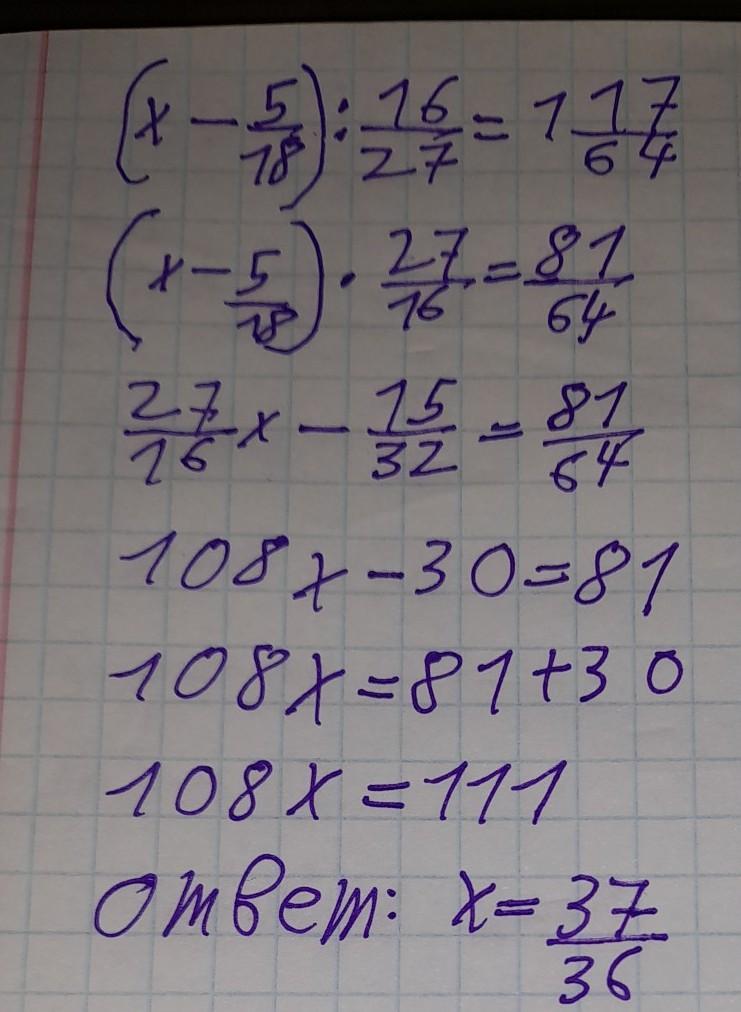 (x - 5/18) : 16/27 = 1 17/64
(x - 5/18) · 27/16 = 81/64
27/16 x - 15/32 = 81/64
108x - 30 = 81
108x = 81 + 30
108x = 111
ответ: x = 37/36